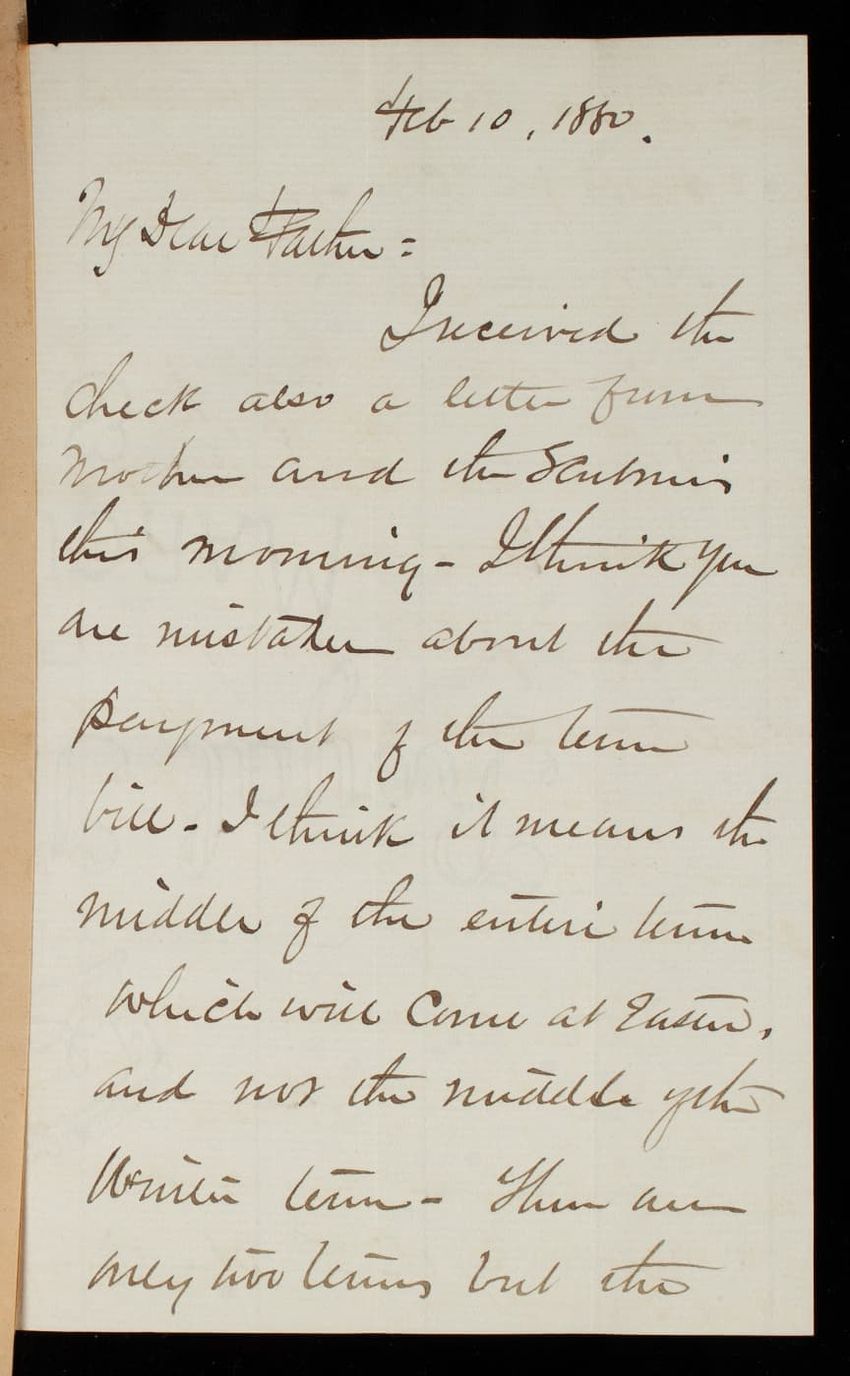 Feb 10, 1880.
My Dear Father =
I received the
check also a letter from
Mother and the Scribner's
this morning - I think you
are mistaken about the
payment of the term
bill - I think it means the
middle of the entire term
which will come at Easter,
and not the middle of the
Winter term - There are
only two terms but the